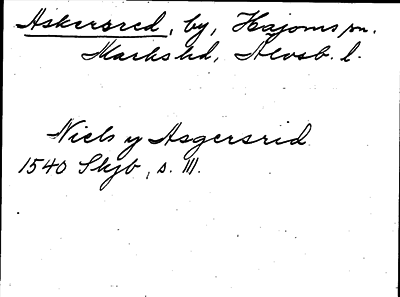 Askersred, by, Hajoms sn.
Marks hd, Älvsb. l.
Niels y Asgersrid
1540 Skjb, s. 111.